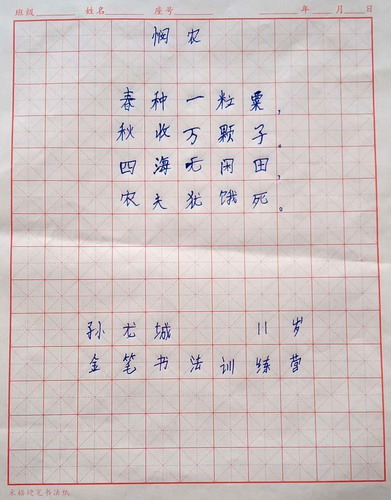 班级 姓名 座号 年 月 日
悯农
春种一粒粟，
秋收万颗子。
四海无闲田，
农夫犹饿死。
孙尤城 11岁
金笔书法训练营
米格硬笔书法纸